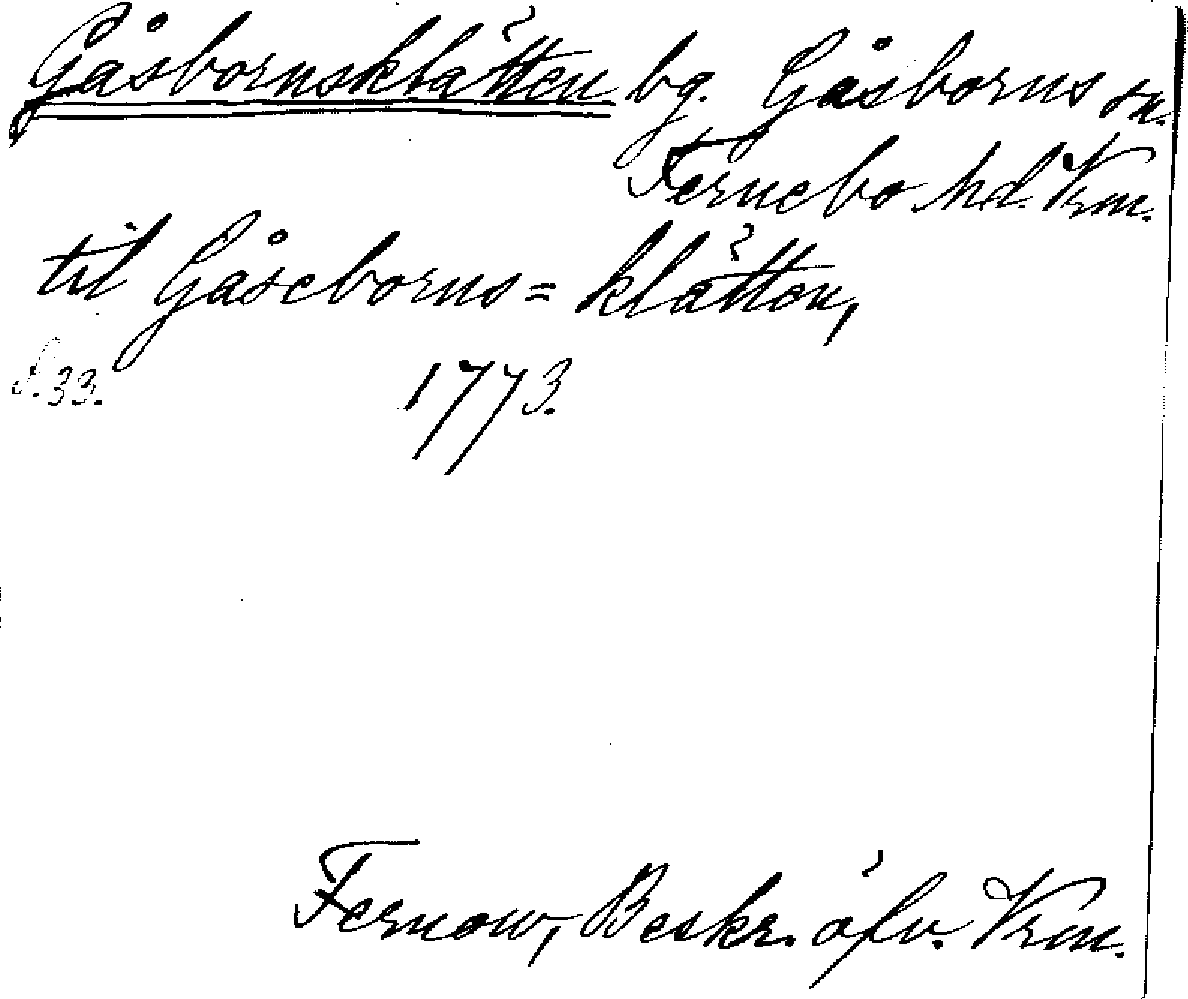 Gåsbornsklätten bg. Gåsborns sn.
Fernebo hd. Vrm.
til Gåseborns=klätten,
s. 33. 1773.
Fernow, Beskr. öfv. Vrm.